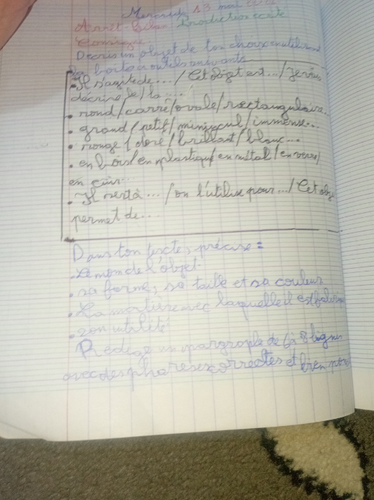 Mercredi 13 mai
Production écrite
Consigne
Décris un objet de ton choix en utilisant
la boîte à outils suivante
. Il s'agit de... / Cet objet est... / Je vais
décrire le / la ....
. rond / carré / ovale / rectangulaire
. grand / petit / minuscul / immense...
. rouge / doré / brillant / blanc...
. en bois / en plastique / en métal / en verre /
en cuir...
. Il sert à ... / on l'utilise pour ... / Cet obj
permet de...
Dans ton texte, précise :
. Le nom de l'objet
. sa forme, sa taille et sa couleur
. La matière avec laquelle il est
. son utilité
Rédige un paragraphe de 6 à 8 lignes
avec des phrases correctes et bien